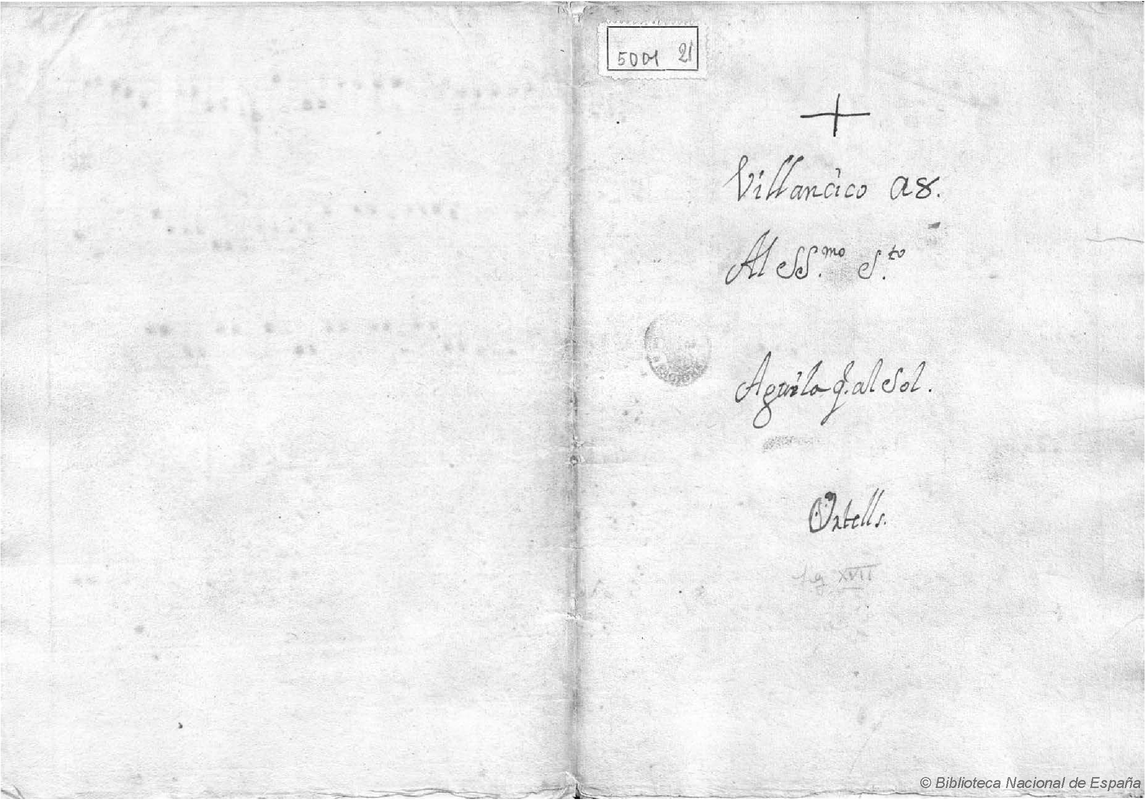 5001 21
Villancico a 8.
Al SS.mo S.to
Aguila q. al Sol.
Ortells.
Sg XVII
© Biblioteca Nacional de España